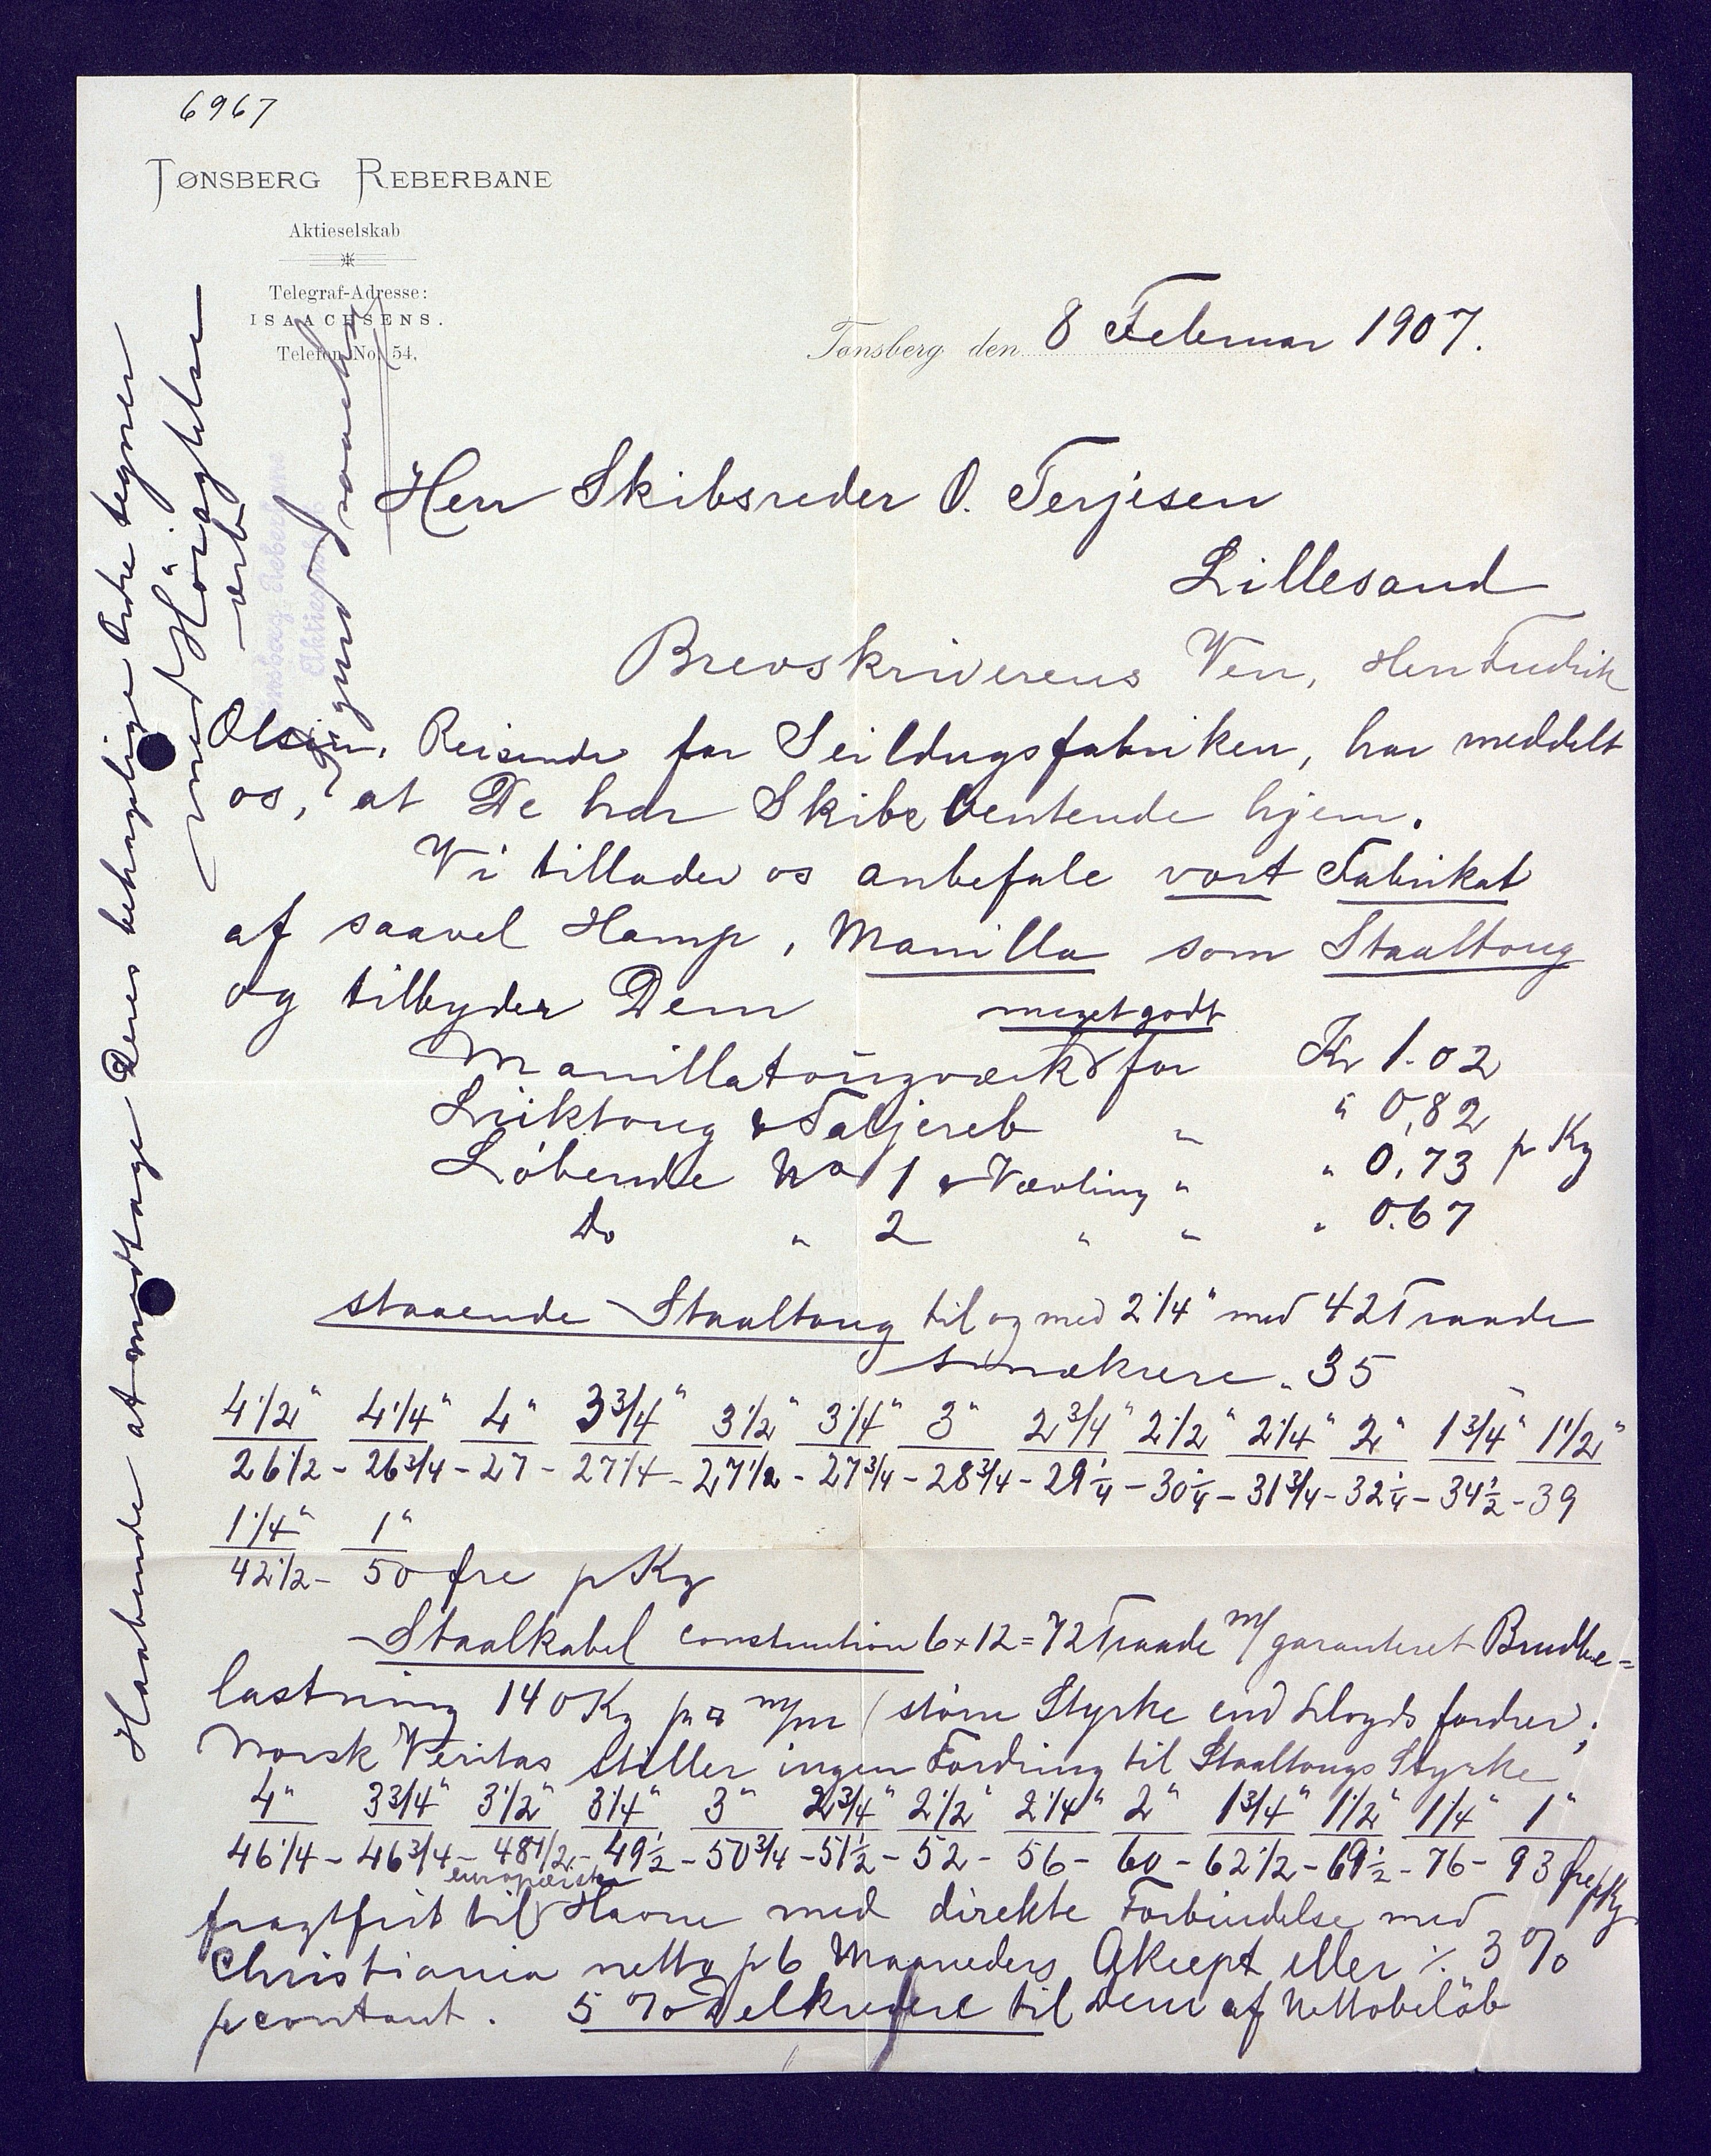 6967
TØNSBERG REBERBANE
Aktieselskab
Telegraf-Adresse:
ISAACHSENS.
Telefon No. 54.
Tønsberg den 8 Februar 1907.
Herr Skibsreder O. Terjesen
Lillesand
Brevskriverens Ven, Herr Fredrik
Olsen, Reisende for Seildugsfabriken, har meddelt
os, at De har Skibe ventende hjem.
Vi tillader os anbefale vort Fabrikat
af saavel Hamp, Manilla som Staaltoug
og tilbyder Dem
meget godt
Manillatougværk for Kr 1.02
Liiktoug & Taljereb " " 0,82
Löbende No 1 & Vævling " " 0,73 p Kg
Do " 2 " " " 0.67
staaende Staaltoug til og med 2 1/4" med 42 Traade
smækrere " 35 "
4 1/2" 4 1/4" 4" 3 3/4" 3 1/2" 3 1/4" 3" 2 3/4" 2 1/2" 2 1/4" 2" 1 3/4" 1 1/2"
26 1/2 - 26 3/4 - 27 - 27 1/4 - 27 1/2 - 27 3/4 - 28 3/4 - 29 1/4 - 30 1/4 - 31 3/4 - 32 1/4 - 34 1/2 - 39
1 1/4" 1"
42 1/2 - 50 Øre p Kg
Staalkabel construction 6 x 12 = 72 Traade m/ garanteret Brudbe=
lastning 140 Kg pr □ m/m (större Styrke end Lloyds fordrer;
Norsk Veritas stiller ingen Fordring til Staaltougs Styrke
4" 3 3/4" 3 1/2" 3 1/4" 3" 2 3/4" 2 1/2" 2 1/4" 2" 1 3/4" 1 1/2" 1 1/4" 1"
46 1/4 - 46 3/4 - 48 1/2 - 49 1/2 - 50 3/4 - 51 1/2 - 52 - 56 - 60 - 62 1/2 - 69 1/2 - 76 - 93 Øre p Kg
europæiske
fragtfrit til Havne med direkte Forbindelse med
Christiania netto p 6 Maaneders Akcept eller ÷ 3 %
p contant. 5 % Delkredere til Dem af Nettobelöb
Haabende at modtage Deres behagelige Ordre tegner
med Höiagtelse
ærb
Tønsberg Reberbane
Aktieselskab